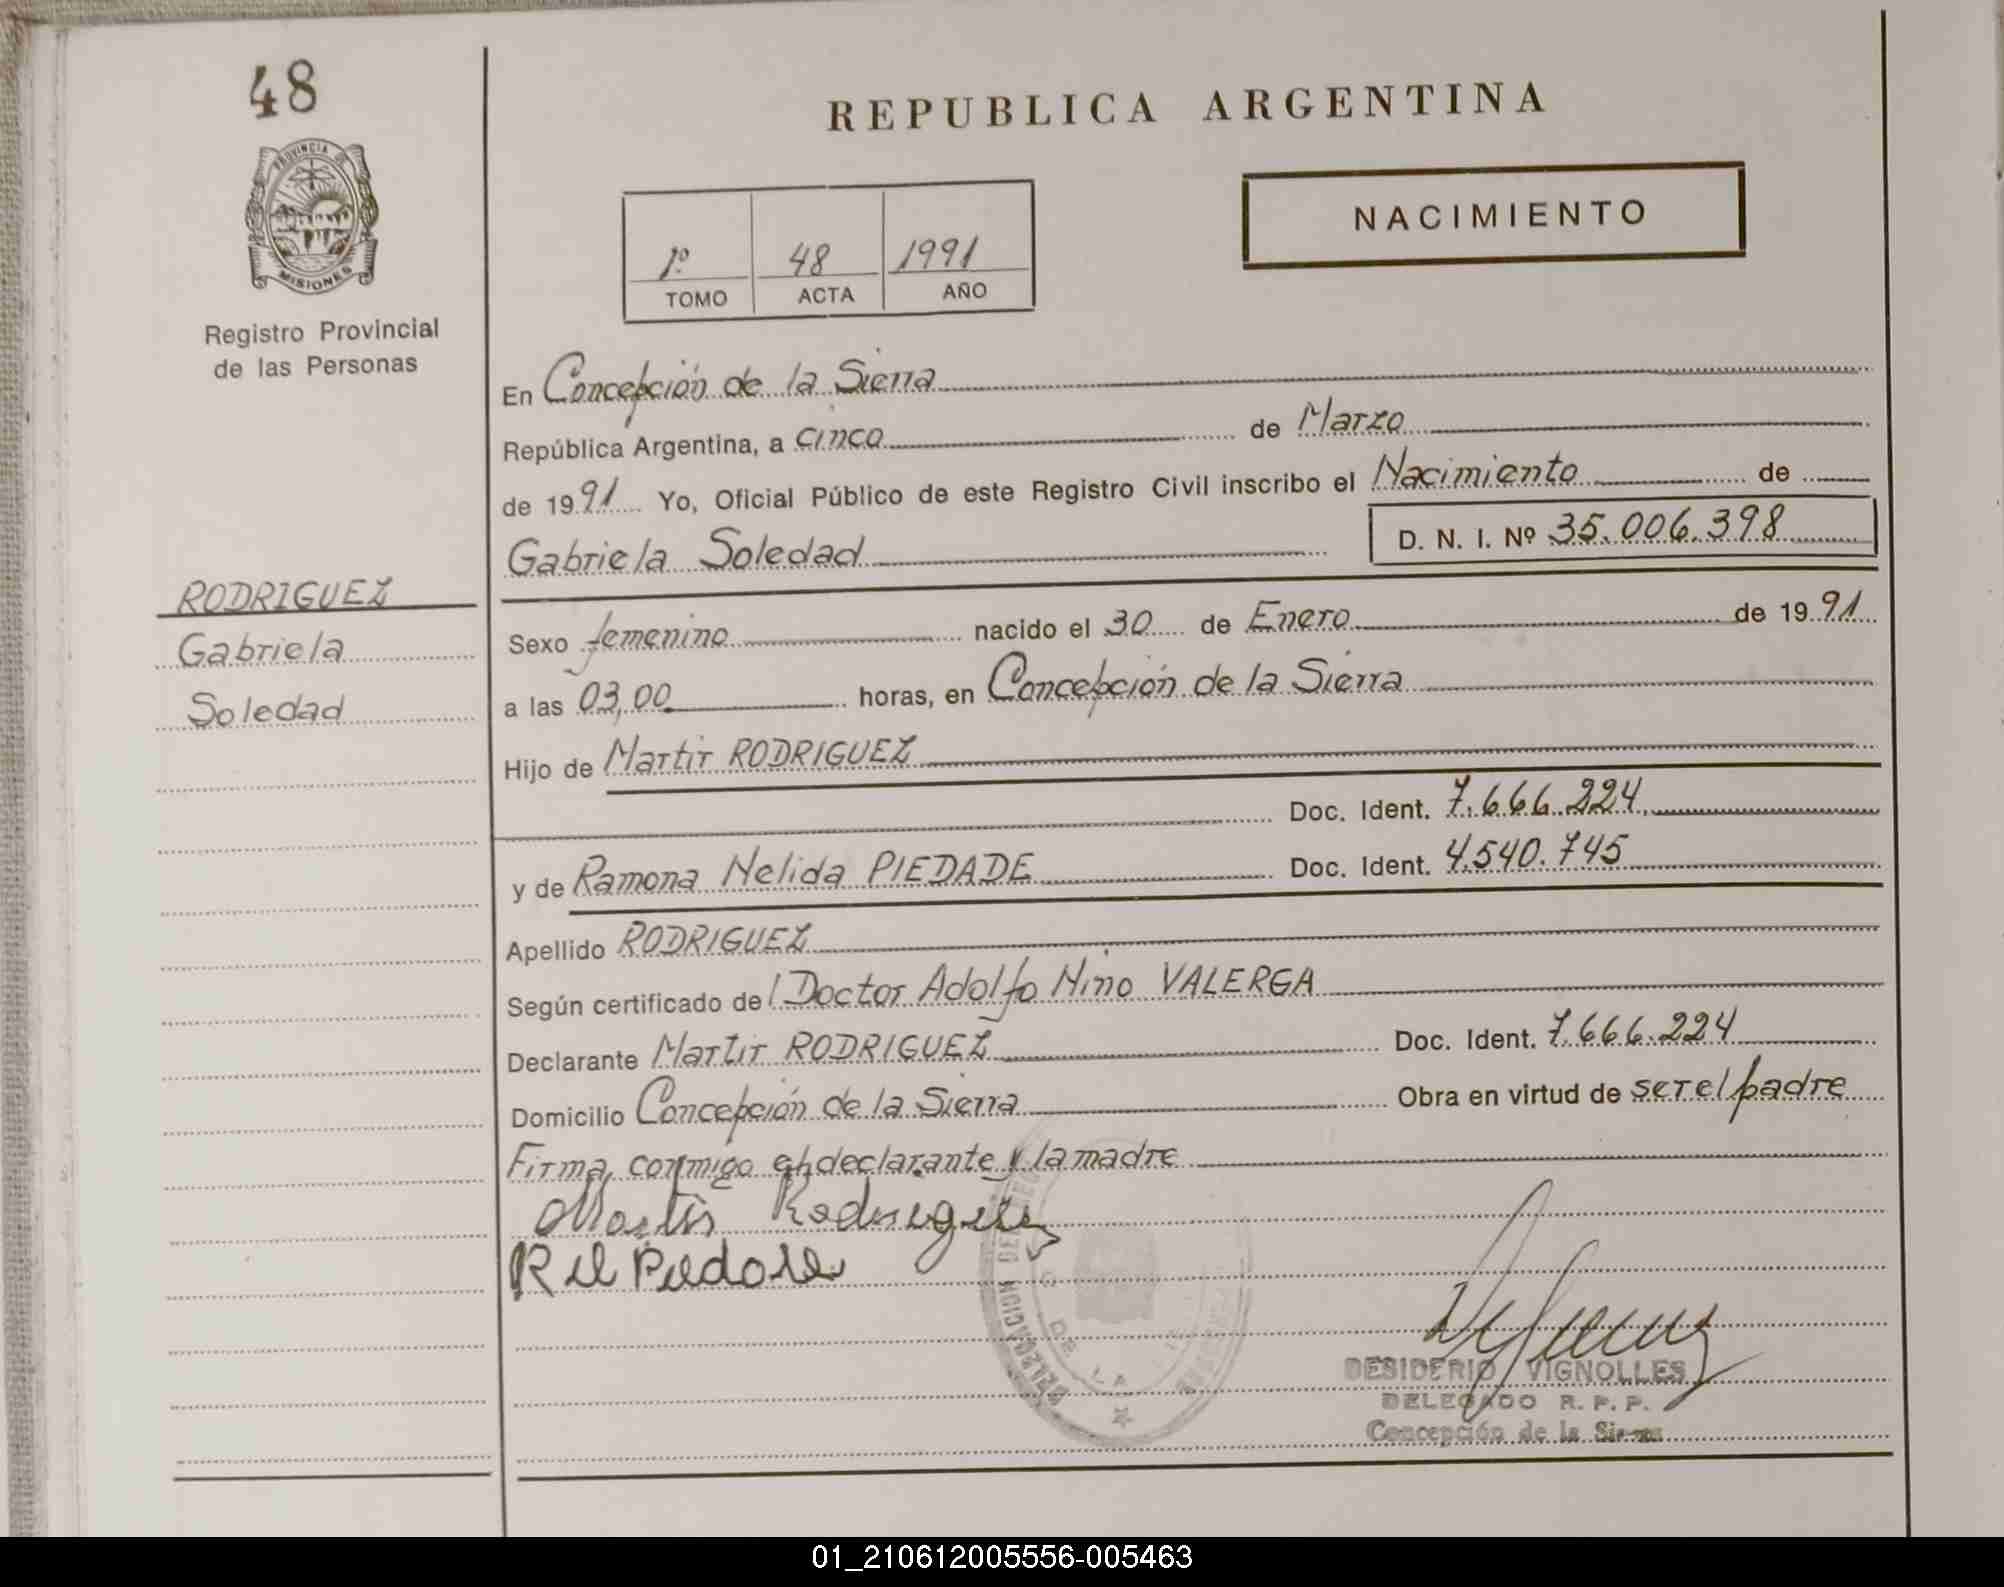 48
PROVINCIA DE
MISIONES
Registro Provincial
de las Personas
RODRIGUEZ
Gabriela
Soledad
REPUBLICA ARGENTINA
NACIMIENTO
1º 48 1991
TOMO ACTA AÑO
En Concepción de la Sierra
República Argentina, a cinco de Marzo
de 1991 Yo, Oficial Público de este Registro Civil inscribo el Nacimiento de
Gabriela Soledad D. N. I. Nº 35.006.398
Sexo femenino nacido el 30 de Enero de 1991
a las 03,00 horas, en Concepción de la Sierra
Hijo de Martir RODRIGUEZ
Doc. Ident. 7.666.224
y de Ramona Nelida PIEDADE Doc. Ident. 4.540.745
Apellido RODRIGUEZ
Según certificado del Doctor Adolfo Nino VALERGA
Declarante Martir RODRIGUEZ Doc. Ident. 7.666.224
Domicilio Concepción de la Sierra Obra en virtud de ser el padre
Firma conmigo el declarante y la madre
Martir Rodriguez
DELEGACION DEL
DE LA
DESIDERIO VIGNOLLES
DELEGADO R. P. P.
Concepción de la Sierra
01_210612005556-005463